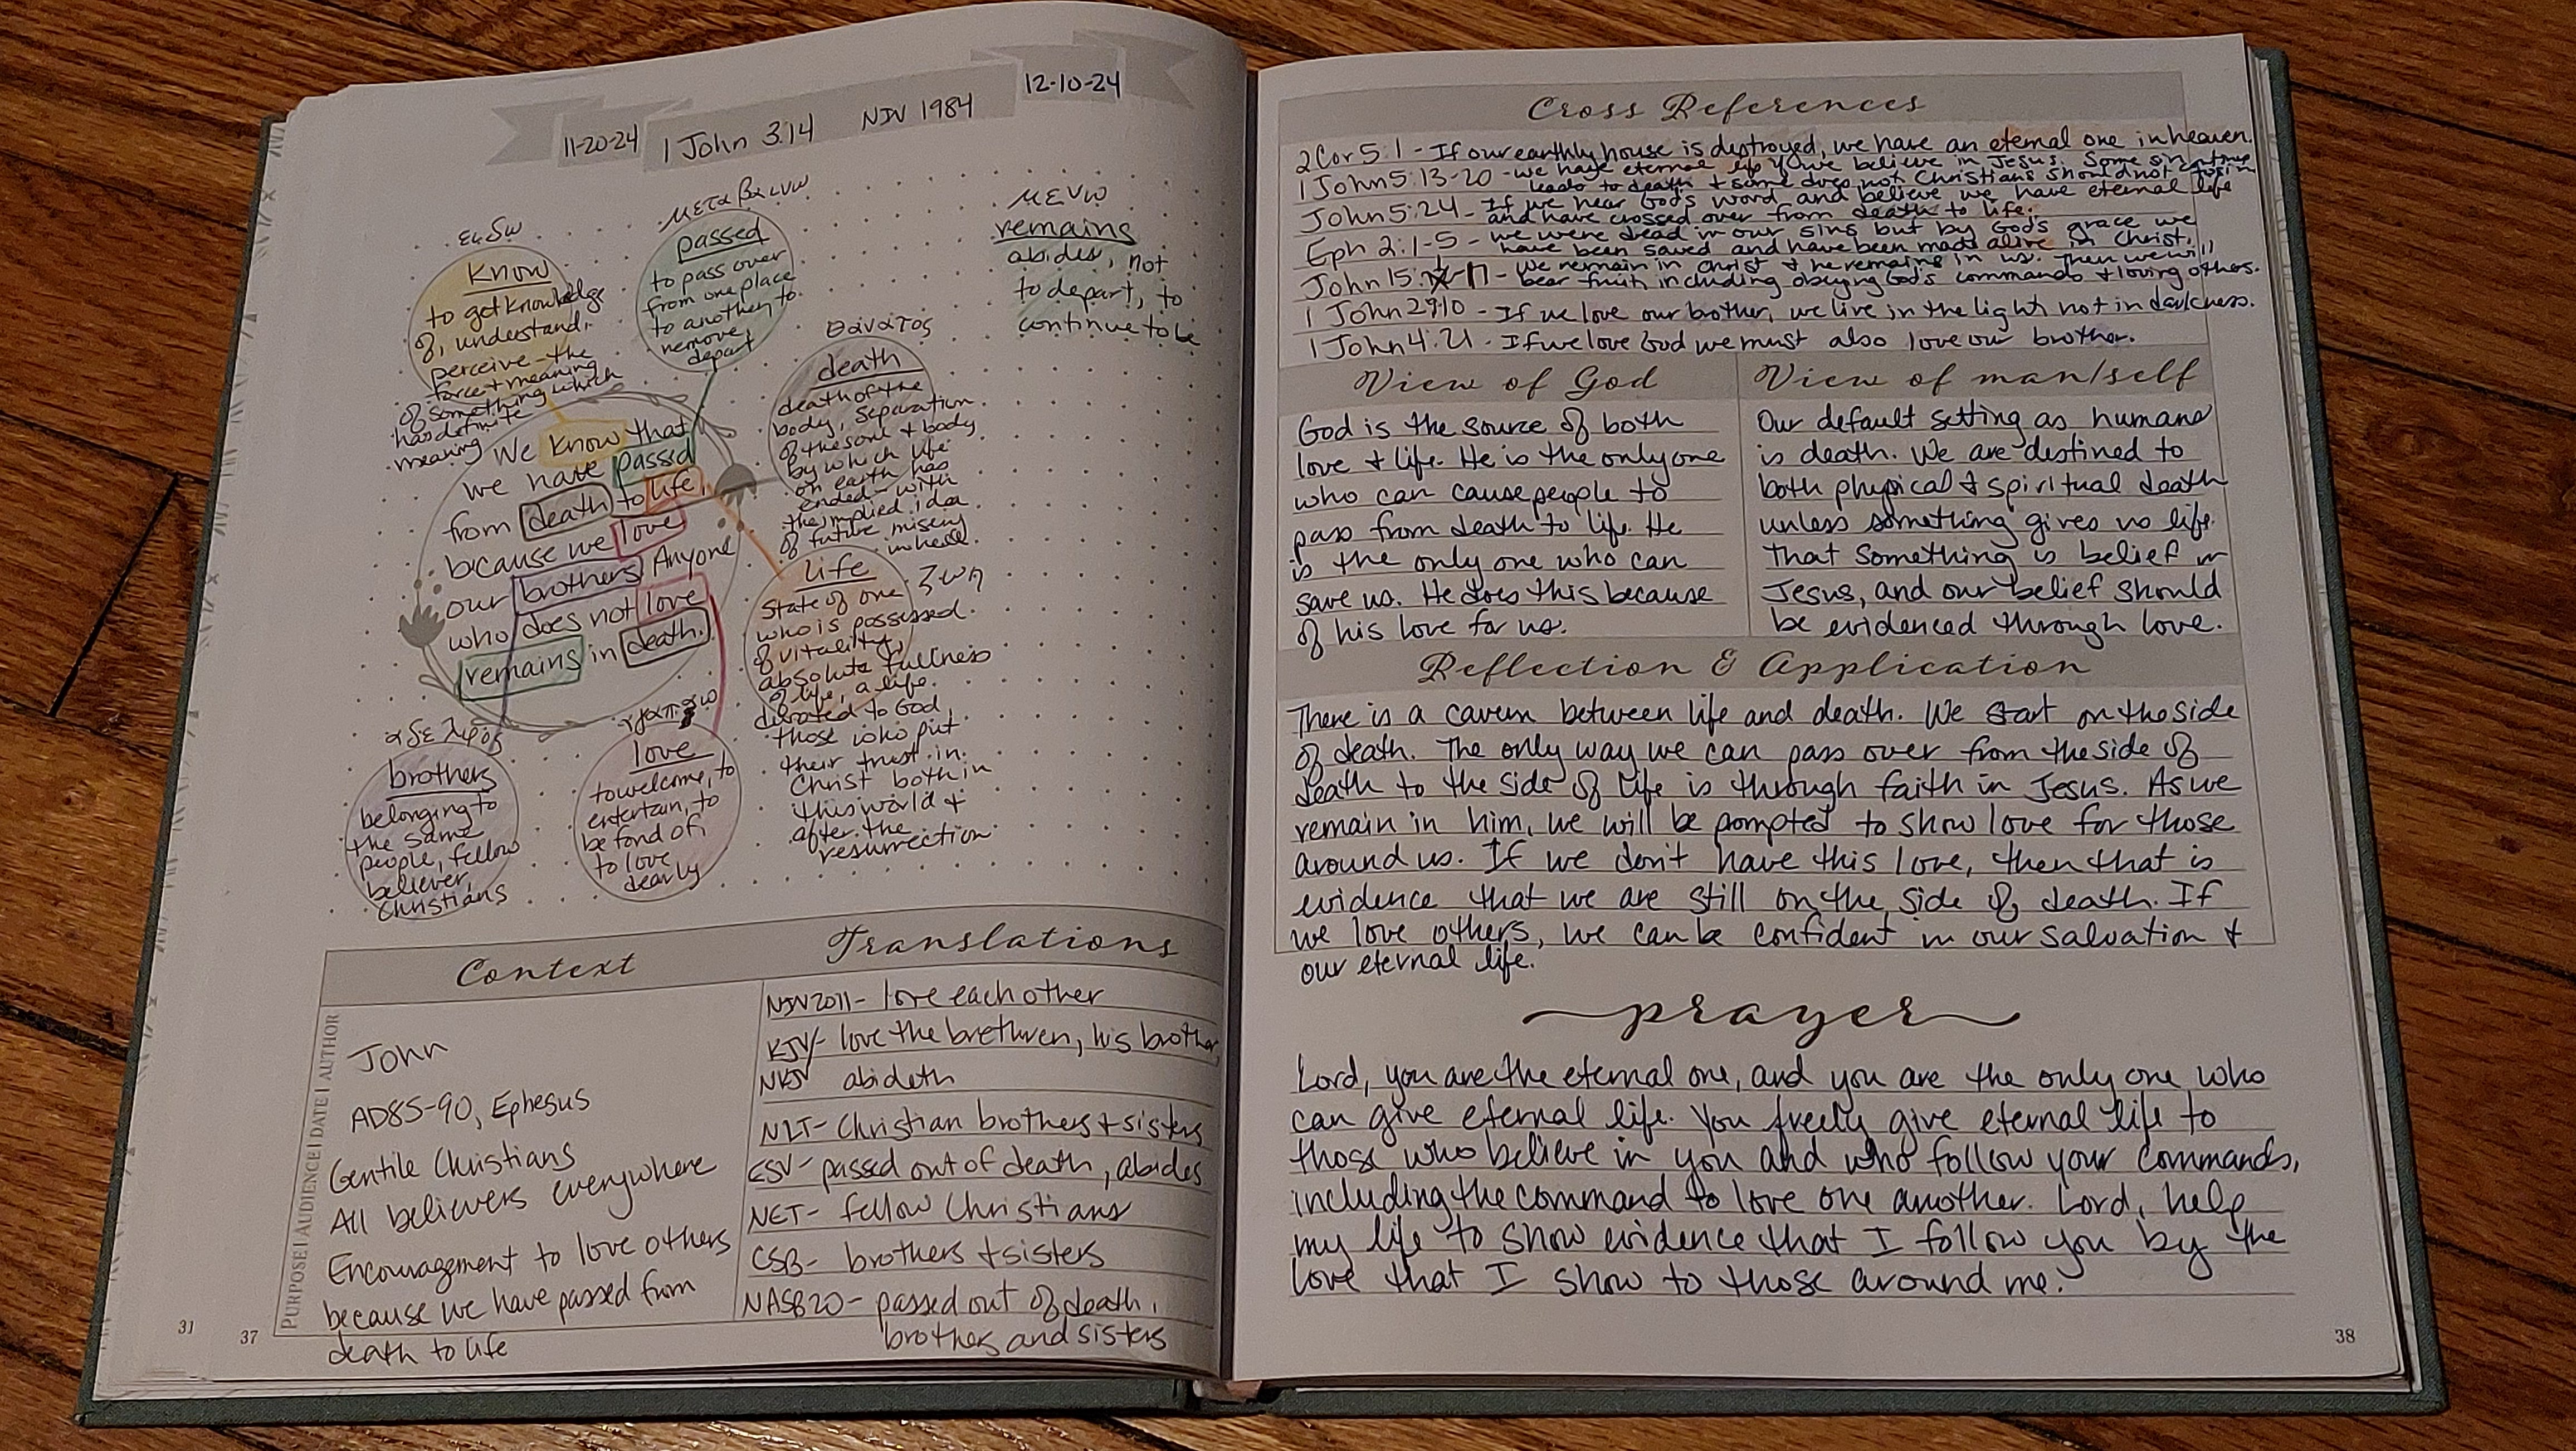 11-20-24
1 John 3:14 NIV 1984
12-10-24
ειδω
Know
to get knowledge
of, understand,
perceive - the
force + meaning
of something which
has definite
meaning
μεταβαινω
passed
to pass over
from one place
to another, to
remove,
depart
μενω
remains
abides, not
to depart, to
continue to be
θάνατος
death
death of the
body, separation
of the soul + body
by which life
on earth has
ended - with
the implied idea
of future misery
in hell.
We know that
we have passed
from death to life,
because we love
our brothers. Anyone
who does not love
remains in death.
life ζωη
state of one
who is possessed
of vitality,
absolute fullness
of life, a life
devoted to God,
those who put
their trust in
Christ both in
this world +
after the
resurrection
αδελφος
brothers
belonging to
the same
people, fellow
believer,
Christians
love
to welcome, to
entertain, to
be fond of,
to love
dearly
Context
PURPOSE | AUDIENCE | DATE | AUTHOR
John
AD85-90, Ephesus
Gentile Christians
All believers everywhere
Encouragement to love others
because we have passed from
death to life
Translations
NIV2011- love each other
KJV- love the brethren, his brother,
NKJV abideth
NLT- Christian brothers + sisters
ESV- passed out of death, abides
NET- fellow Christians
CSB- brothers + sisters
NASB20- passed out of death,
brothers and sisters
31
37
Cross References
2 Cor 5:1 - If our earthly house is destroyed, we have an eternal one in heaven.
1 John 5:13-20 - we have eternal life if we believe in Jesus. Some sin
leads to death + some does not. Christians should not
John 5:24 - If we hear God's word and believe we have eternal life
and have crossed over from death to life.
Eph 2:1-5 - we were dead in our sins but by God's grace we
have been saved and have been made alive in Christ.
John 15: 17 - We remain in Christ + he remains in us. Then we will
bear fruit including obeying God's commands + loving others.
1 John 2:9,10 - If we love our brother, we live in the light not in darkness.
1 John 4:21 - If we love God we must also love our brother.
View of God
God is the source of both
love + life. He is the only one
who can cause people to
pass from death to life. He
is the only one who can
save us. He does this because
of his love for us.
View of man/self
Our default setting as humans
is death. We are destined to
both physical + spiritual death
unless something gives us life.
That something is belief in
Jesus, and our belief should
be evidenced through love.
Reflection & Application
There is a cavern between life and death. We start on the side
of death. The only way we can pass over from the side of
death to the side of life is through faith in Jesus. As we
remain in him, we will be pompted to show love for those
around us. If we don't have this love, then that is
evidence that we are still on the side of death. If
we love others, we can be confident in our salvation +
our eternal life.
prayer
Lord, you are the eternal one, and you are the only one who
can give eternal life. You freely give eternal life to
those who believe in you and who follow your commands,
including the command to love one another. Lord, help
my life to show evidence that I follow you by the
love that I show to those around me.
38